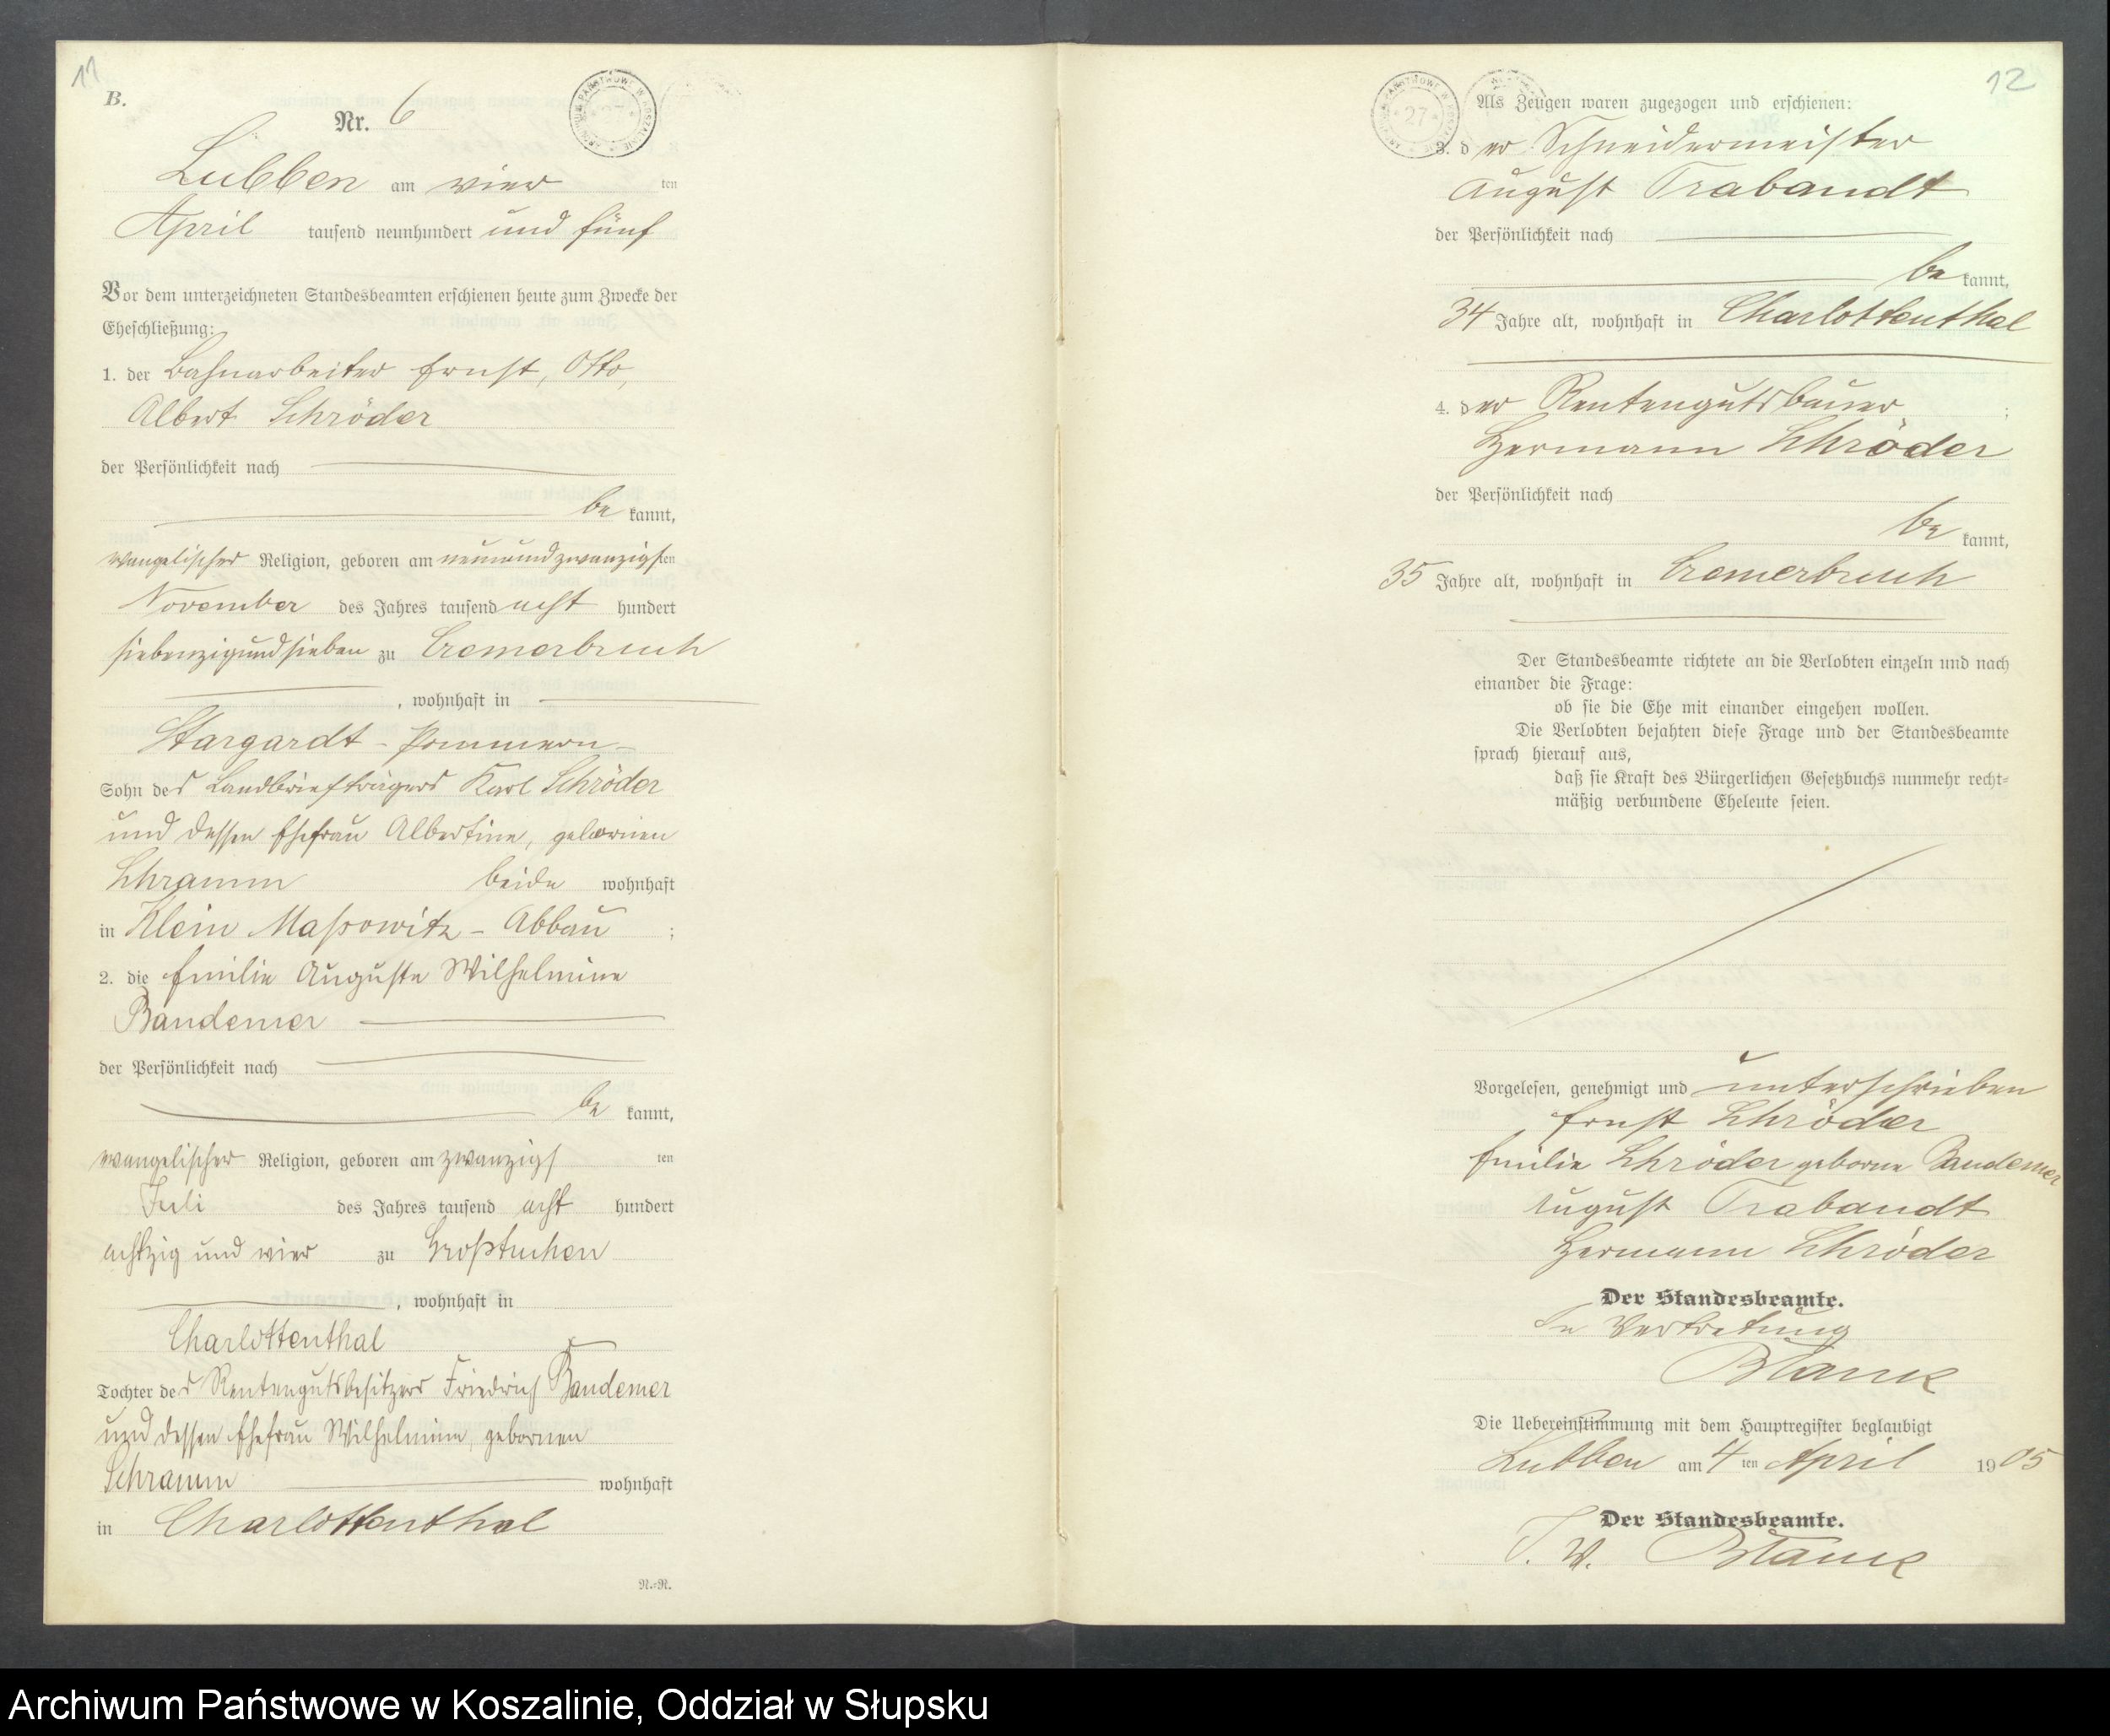 11
B.
Nr. 6
ARCHIWUM PAŃSTWOWE W KOSZALINIE
27
Lubben am vier ten
April tausend neunhundert und fünf
Vor dem unterzeichneten Standesbeamten erschienen heute zum Zwecke der
Eheschließung:
1. der Bahnarbeiter Ernst, Otto,
Albert Schröder
der Persönlichkeit nach
be kannt,
evangelischer Religion, geboren am neunundzwanzigsten
November des Jahres tausend acht hundert
siebenzigundsieben zu Cremerbruch
, wohnhaft in
Stargardt - Pommern -
Sohn des Landbriefträgers Karl Schröder
und dessen Ehefrau Albertine, gebornen
Schramm beide wohnhaft
in Klein Massowitz - Abbau ;
2. die Emilie Auguste Wilhelmine
Bandemer
der Persönlichkeit nach
be kannt,
evangelischer Religion, geboren am zwanzigsten
Juli des Jahres tausend acht hundert
achtzig und vier zu Großtuchen
, wohnhaft in
Charlottenthal
Tochter des Rentengutsbesitzers Friedrich Bandemer
und dessen Ehefrau Wilhelmine, gebornen
Schramm wohnhaft
in Charlottenthal
N.-N.
12
ARCHIWUM PAŃSTWOWE W KOSZALINIE
27
Als Zeugen waren zugezogen und erschienen:
3. der Schneidermeister
August Trabandt
der Persönlichkeit nach
be kannt,
34 Jahre alt, wohnhaft in Charlottenthal
4. der Rentengutsbauer ;
Hermann Schröder
der Persönlichkeit nach
be kannt,
35 Jahre alt, wohnhaft in Cremerbruch
Der Standesbeamte richtete an die Verlobten einzeln und nach
einander die Frage:
ob sie die Ehe mit einander eingehen wollen.
Die Verlobten bejahten diese Frage und der Standesbeamte
sprach hierauf aus,
daß sie kraft des Bürgerlichen Gesetzbuchs nunmehr recht-
mäßig verbundene Eheleute seien.
Vorgelesen, genehmigt und unterschrieben
Ernst Schröder
Emilie Schröder geborne Bandemer
August Trabandt
Hermann Schröder
Der Standesbeamte.
In Vertretung
Blanck
Die Uebereinstimmung mit dem Hauptregister beglaubigt
Lubben am 4 ten April 1905
Der Standesbeamte.
I. V. Blanck
Archiwum Państwowe w Koszalinie, Oddział w Słupsku